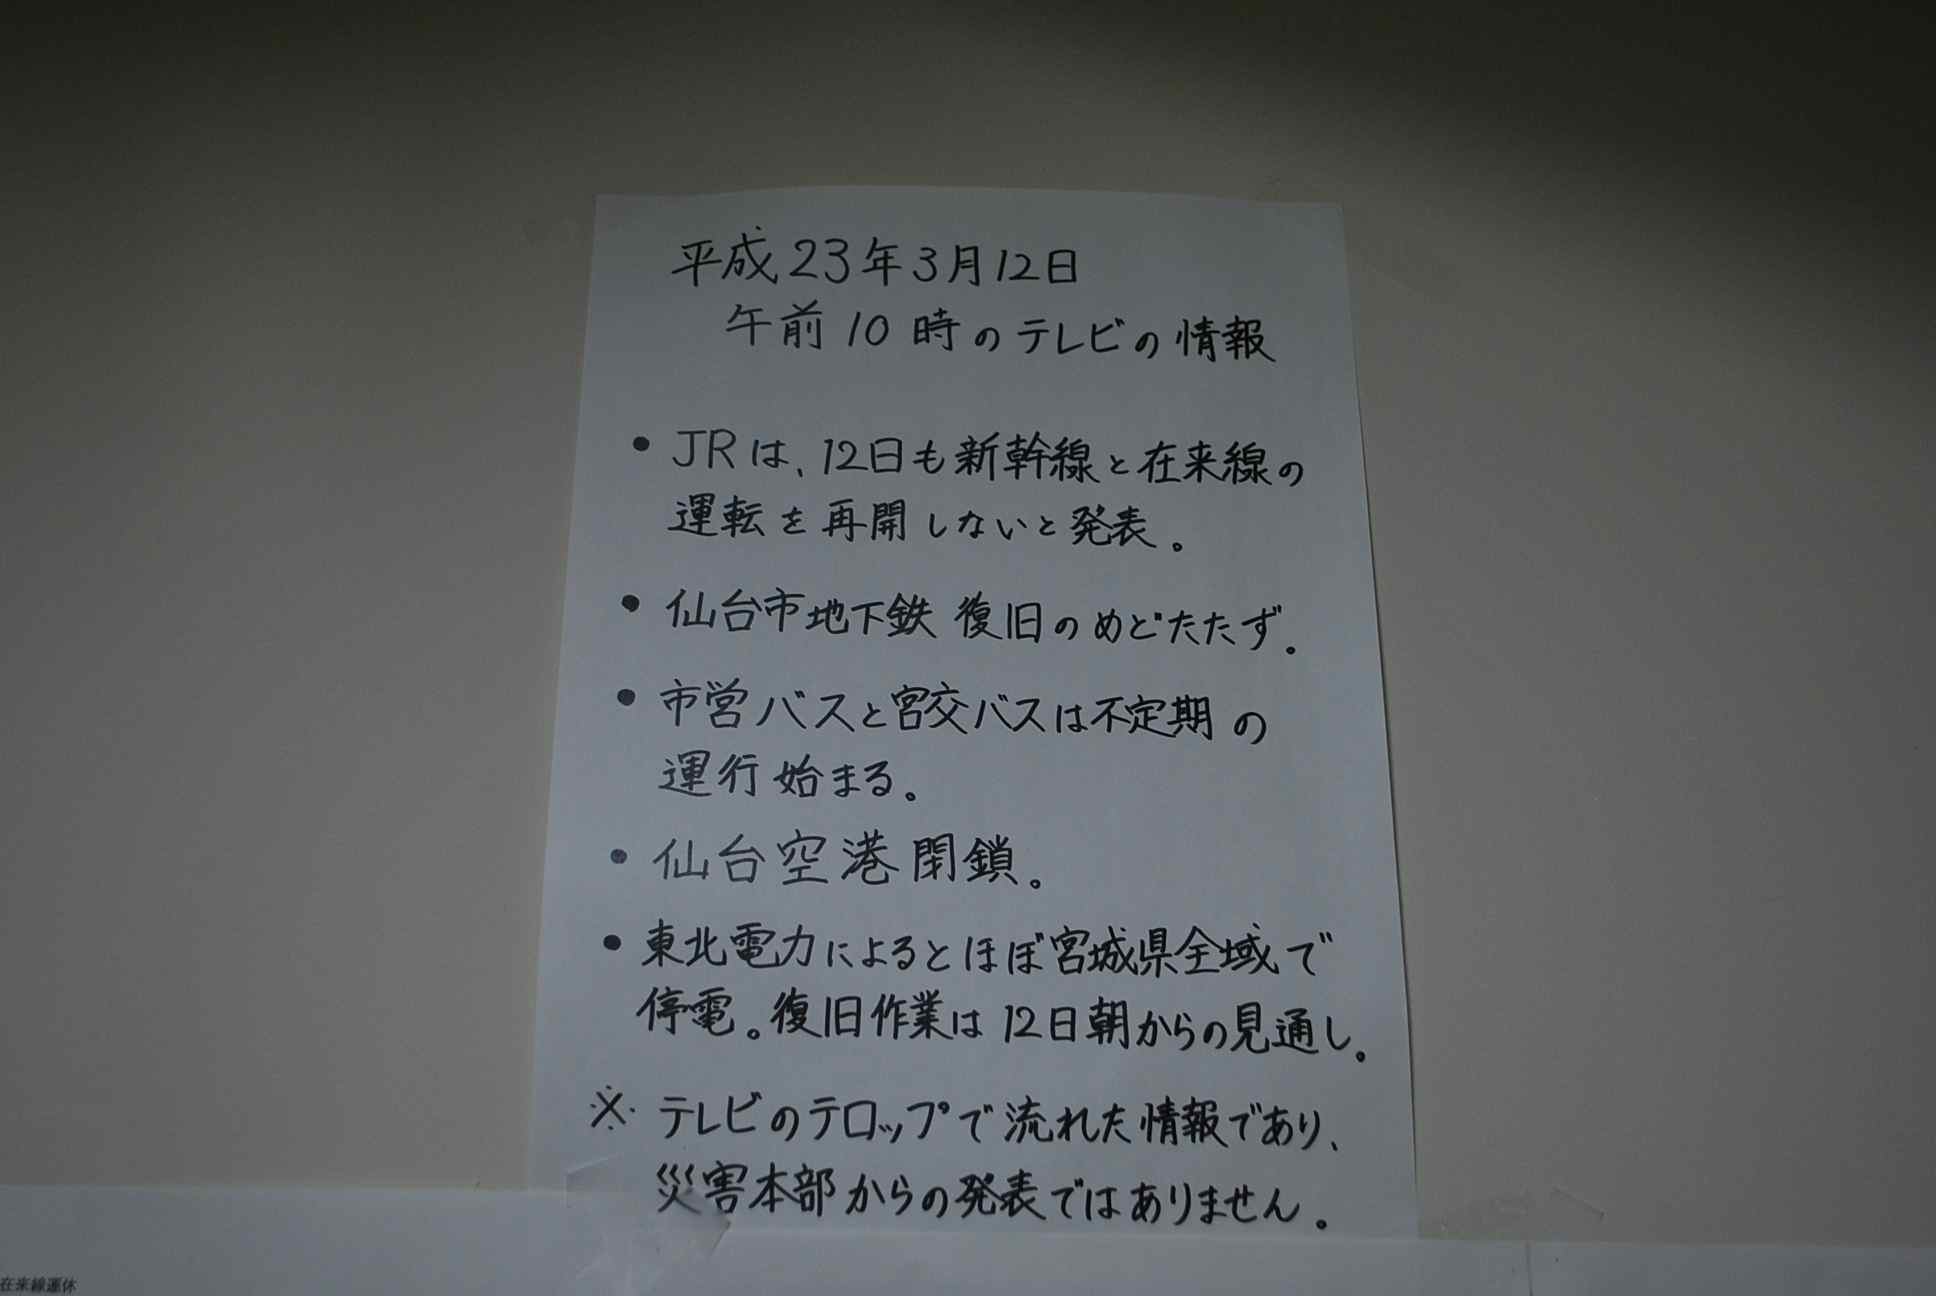 平成23年3月12日
午前10時のテレビの情報
• JRは、12日も新幹線と在来線の
運転を再開しないと発表。
• 仙台市地下鉄 復旧のめどたたず。
• 市営バスと宮交バスは不定期の
運行始まる。
• 仙台空港閉鎖。
• 東北電力によるとほぼ宮城県全域で
停電。復旧作業は12日朝からの見通し。
※ テレビのテロップで流れた情報であり、
災害本部からの発表ではありません。
在来線運休